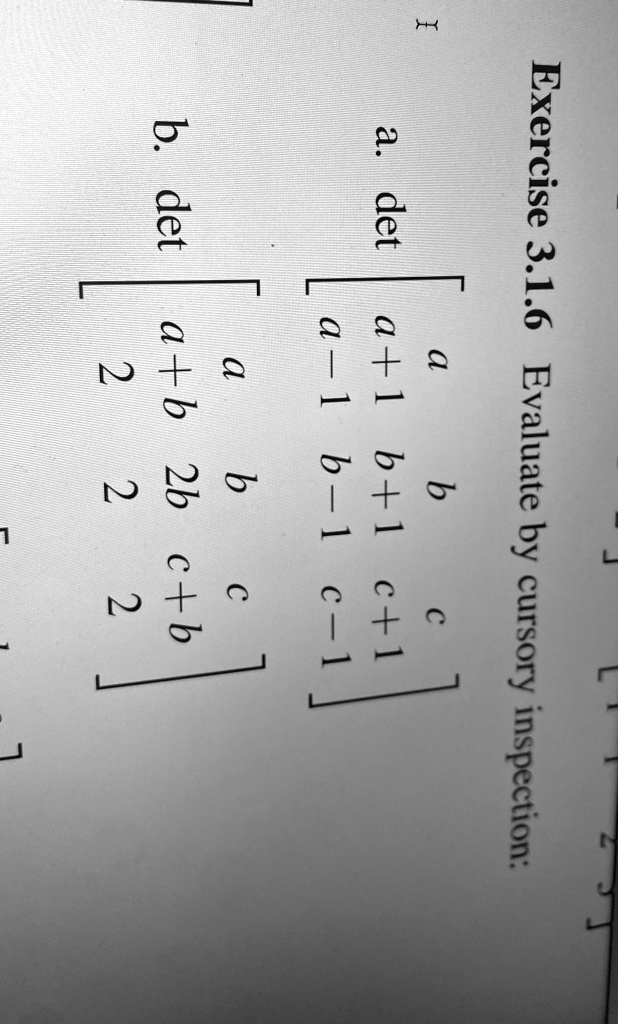 Exercise 3.1.6 Evaluate by cursory inspection:
a. det [ a b c
a+1 b+1 c+1
a−1 b−1 c−1 ]
b. det [ a b c
a+b 2b c+b
2 2 2 ]